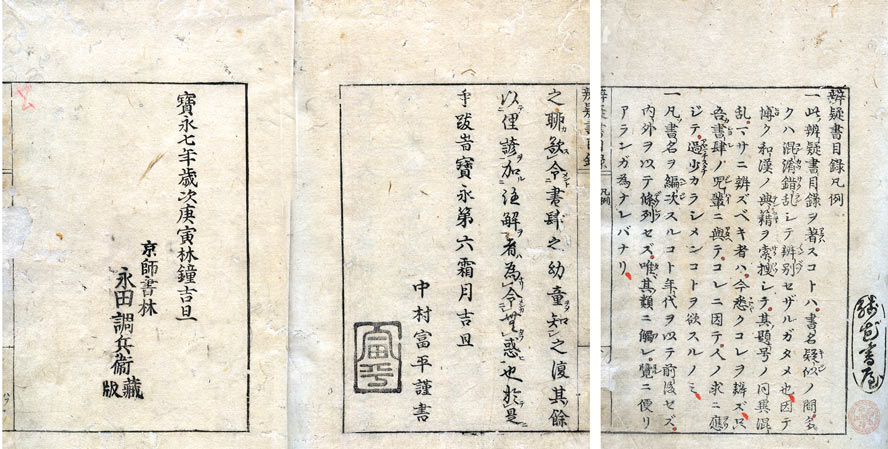 辨疑書目録凡例
一此辨疑書目録ヲ著スコトハ書名疑似ノ間多
クハ混淆錯乱シテ辨別セザルガタメ也因テ
博ク和漢ノ典籍ヲ索捜シテ其題号ノ同異混
乱マサニ辨ズベキ者ハ今悉クコレヲ辨ズ只
吾書肆ノ児輩ニ與テコレニ因テ人ノ求ニ應
ジテ過少カラシメンコトヲ欲スルノミ
一凡書名ヲ編次スルコト年代ヲ以テ前後セズ
内外ヲ以テ條列セズ唯其類ニ觸レ覽ニ便リ
アランガ為ナレバナリ
辨疑書目録
凡例
之聊欲令書肆之幼童知之復其餘
以俚諺加註解者為令無惑也於是
乎跋旹寶永第六霜月吉旦
中村富平謹書
富平
寶永七年歳次庚寅林鐘吉旦
京師書林
永田調兵衛藏版